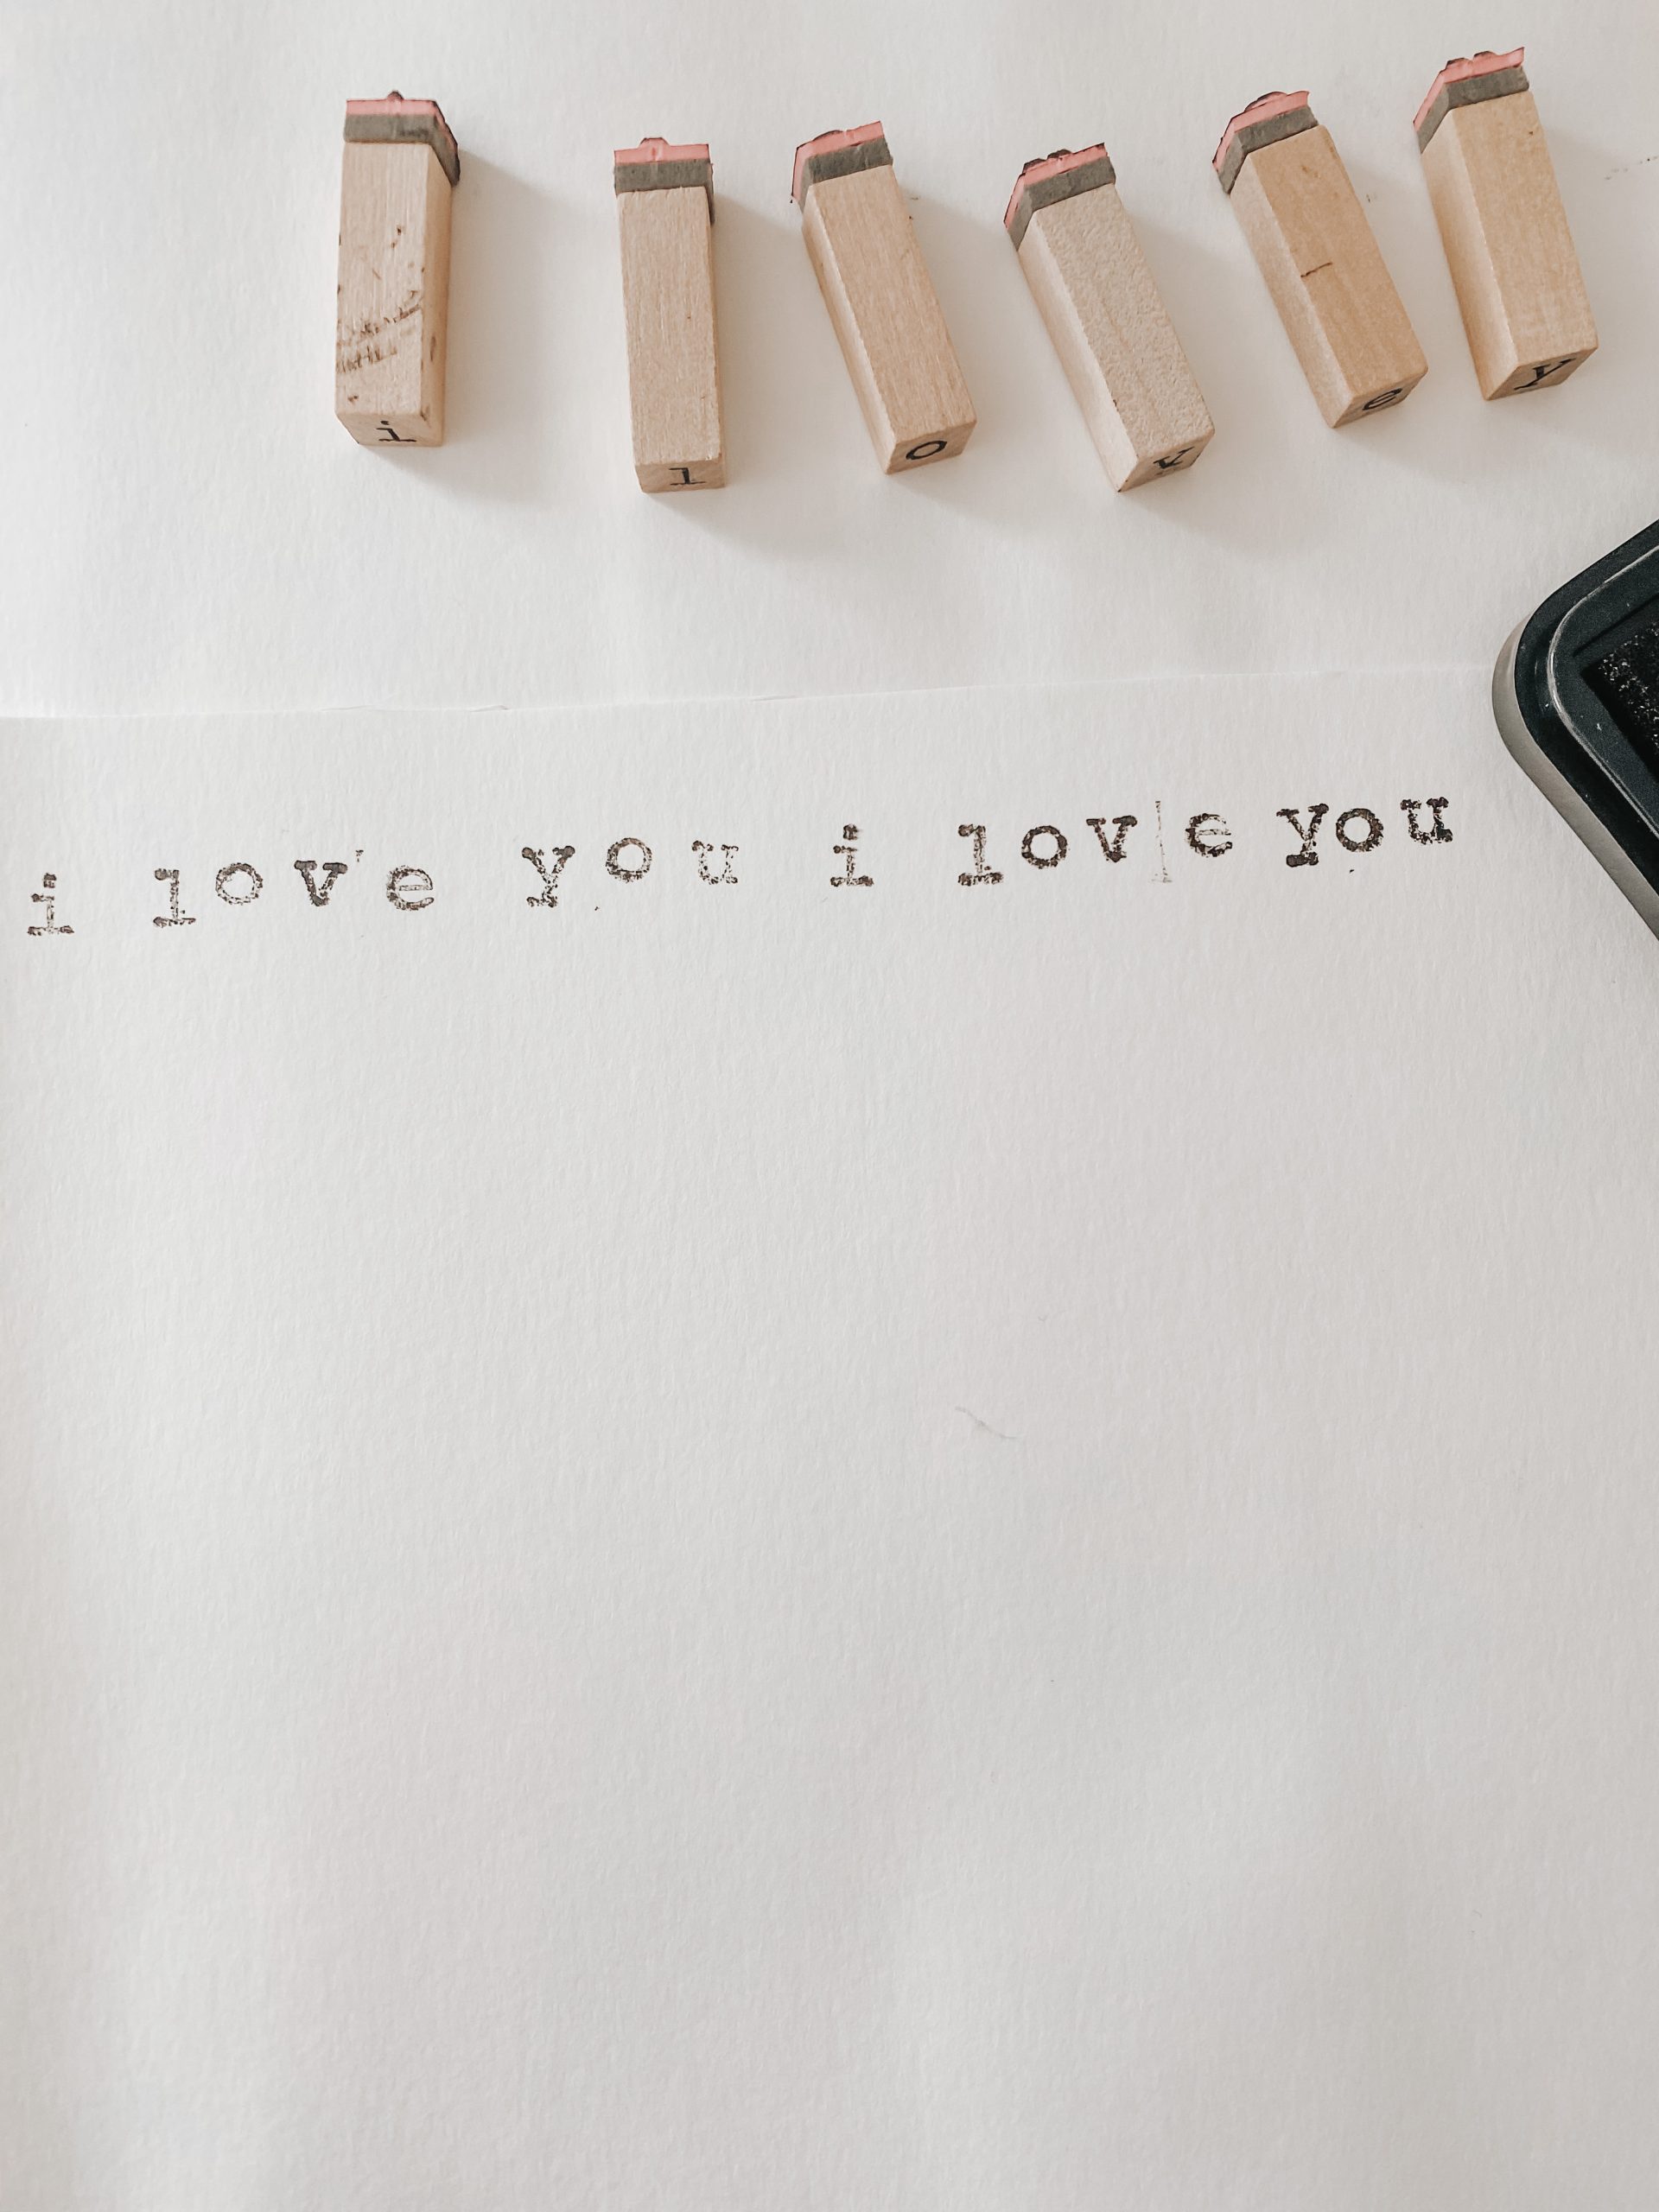 i l o v e y
i love you i love you